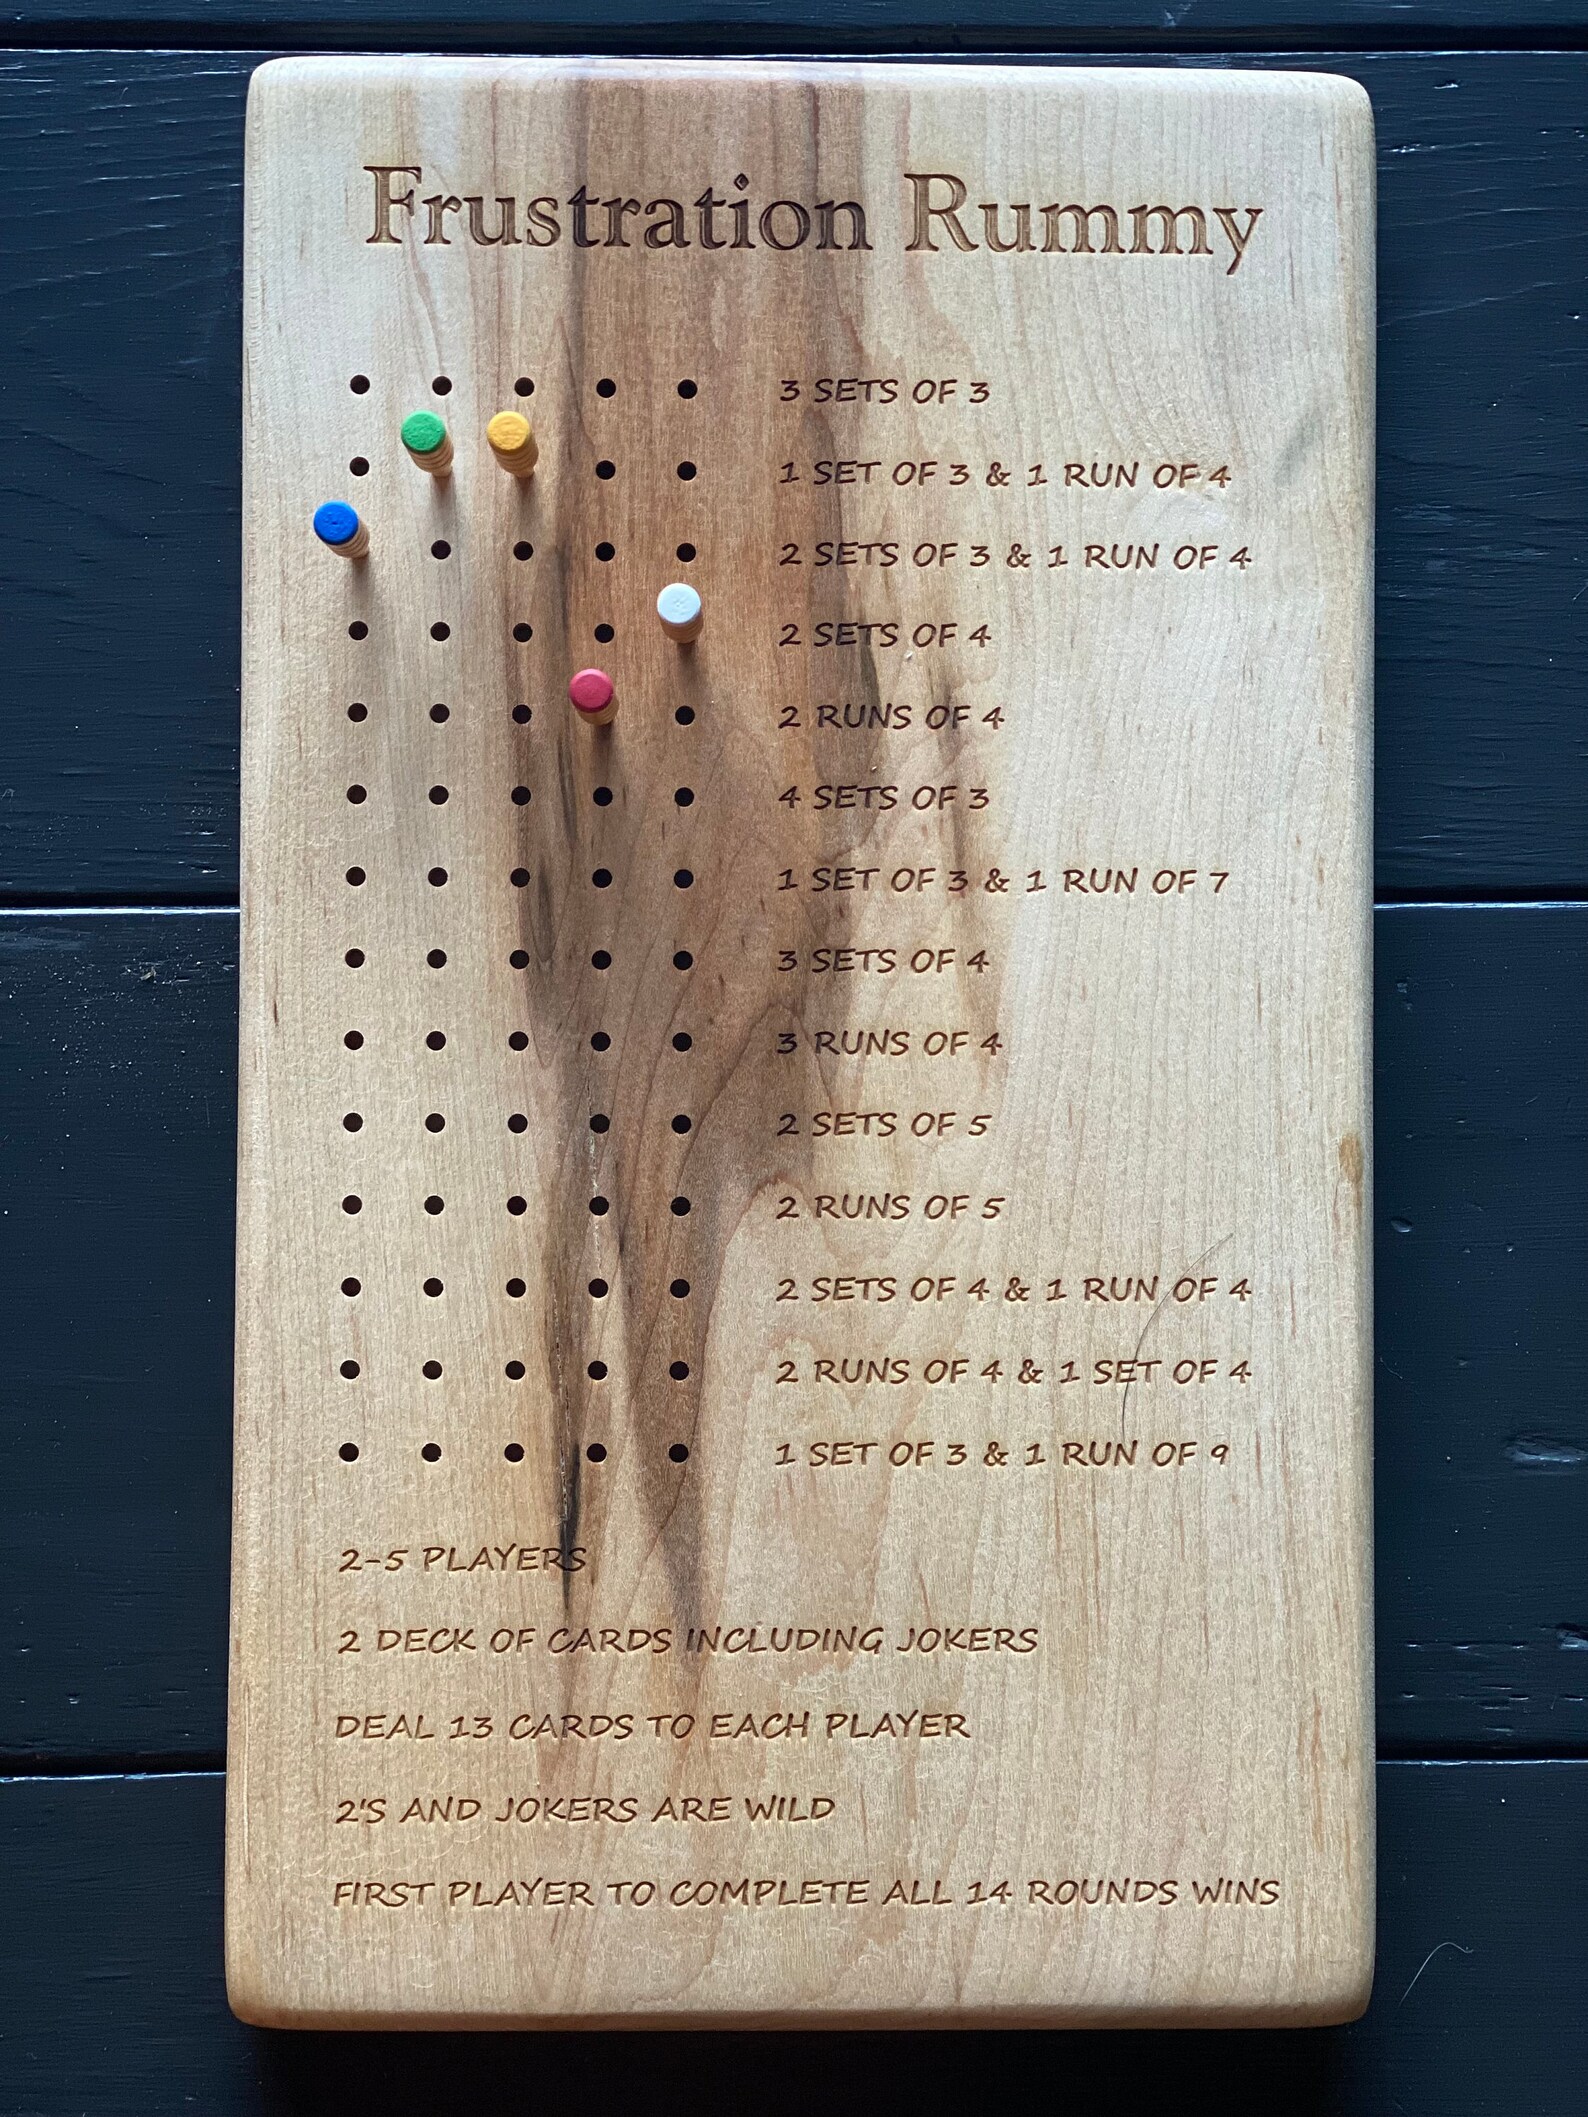 Frustration Rummy
3 SETS OF 3
1 SET OF 3 & 1 RUN OF 4
2 SETS OF 3 & 1 RUN OF 4
2 SETS OF 4
2 RUNS OF 4
4 SETS OF 3
1 SET OF 3 & 1 RUN OF 7
3 SETS OF 4
3 RUNS OF 4
2 SETS OF 5
2 RUNS OF 5
2 SETS OF 4 & 1 RUN OF 4
2 RUNS OF 4 & 1 SET OF 4
1 SET OF 3 & 1 RUN OF 9
2-5 PLAYERS
2 DECK OF CARDS INCLUDING JOKERS
DEAL 13 CARDS TO EACH PLAYER
2'S AND JOKERS ARE WILD
FIRST PLAYER TO COMPLETE ALL 14 ROUNDS WINS